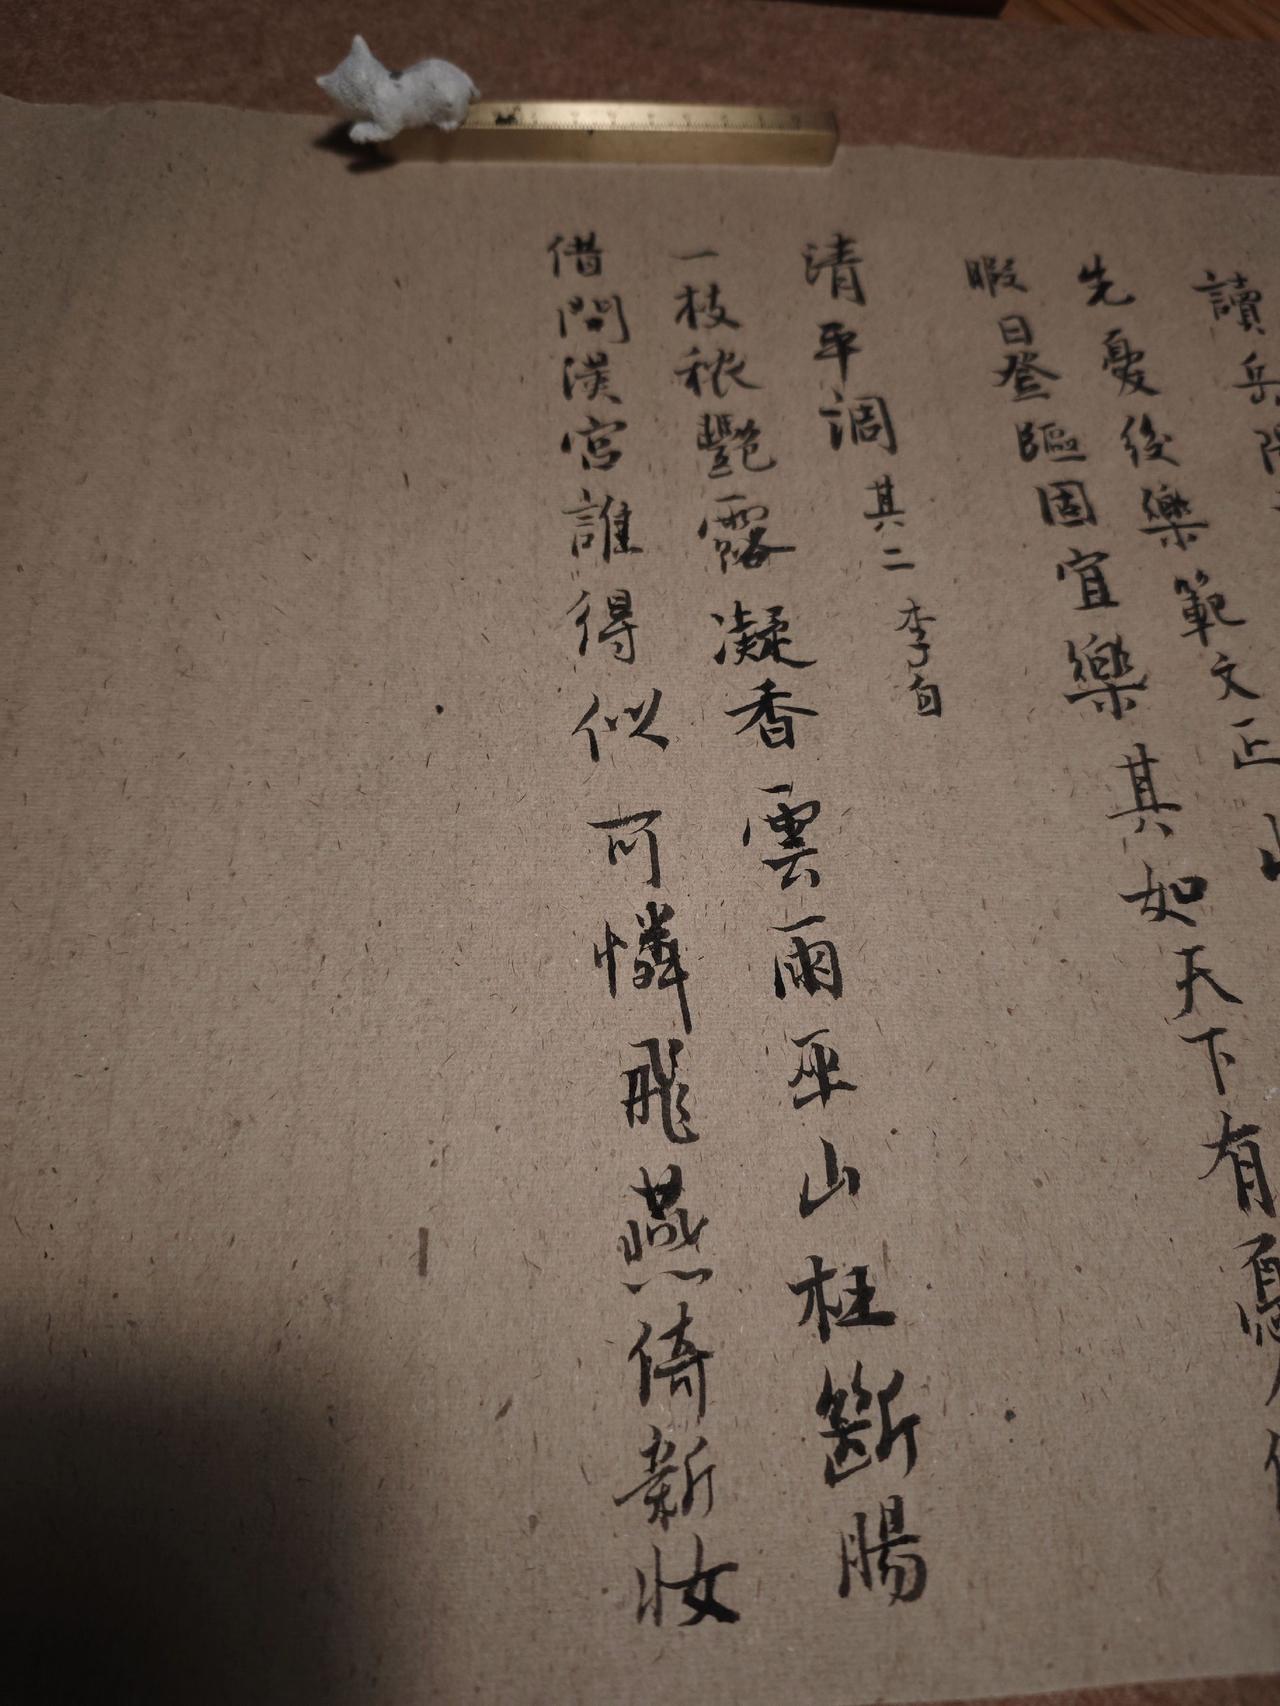 讀岳陽
先憂後樂範文正
暇日登臨固宜樂其如天下有
清平調 其二 李白
一枝秾艷露凝香雲雨巫山枉斷腸
借問漢宮誰得似可憐飛燕倚新妝